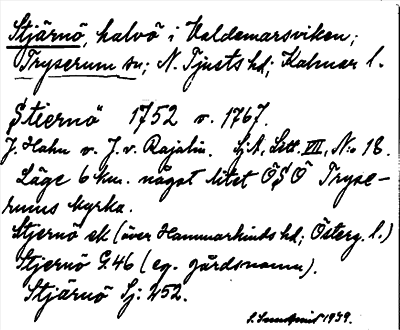 Stjärnö, halvö i Valdemarsviken;
Tryserum sn; N. Tjusts hd; Kalmar l.
Stiernö 1752 v. 1767.
J. Hahn v. J. v. Rajalin. Sj.A, Sekt. VII, N:o 18.
Läge 6 km. något litet ÖSÖ Tryse-
rums kyrka.
Stjernö ek (över Hammarkinds hd; Österg. l.)
Stjernö G.46 (eg. gårdsnamn).
Stjärnö Sj: 252.
1939.